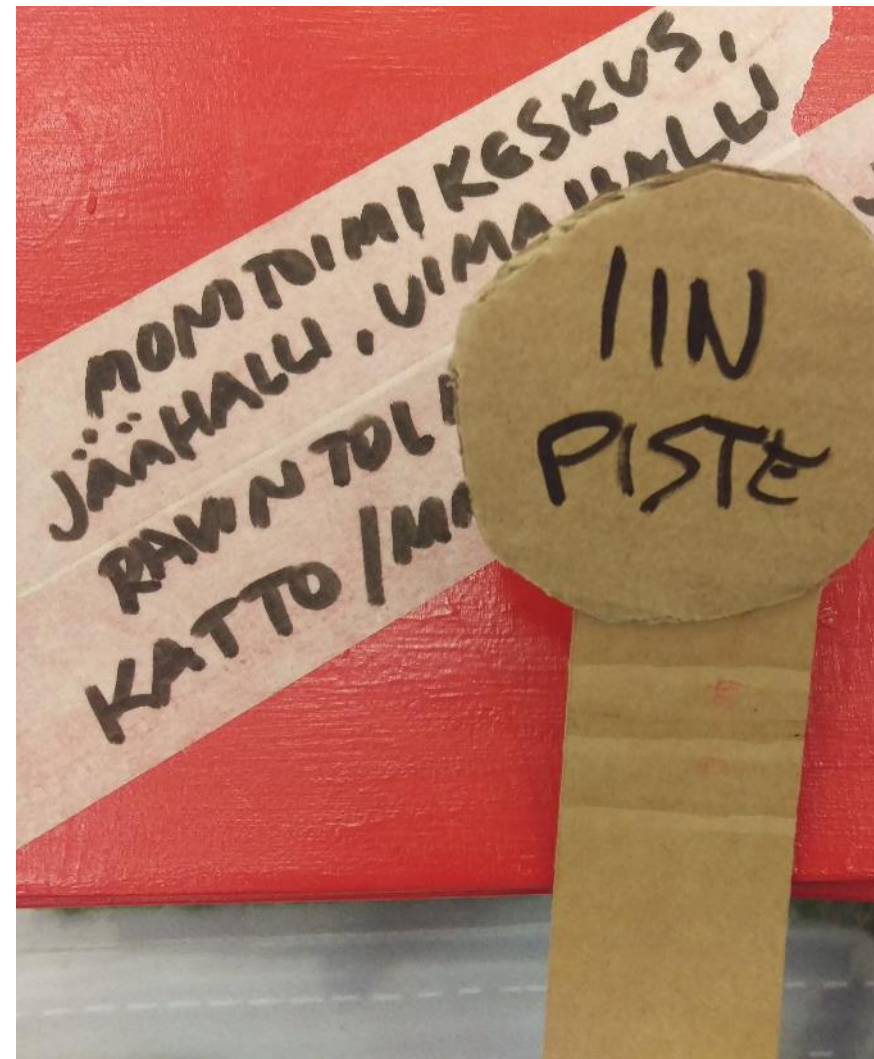 MONITOIMIKESKUS,
JÄÄHALLI, UIMAHALLI
KATTO /
IIN
PISTE